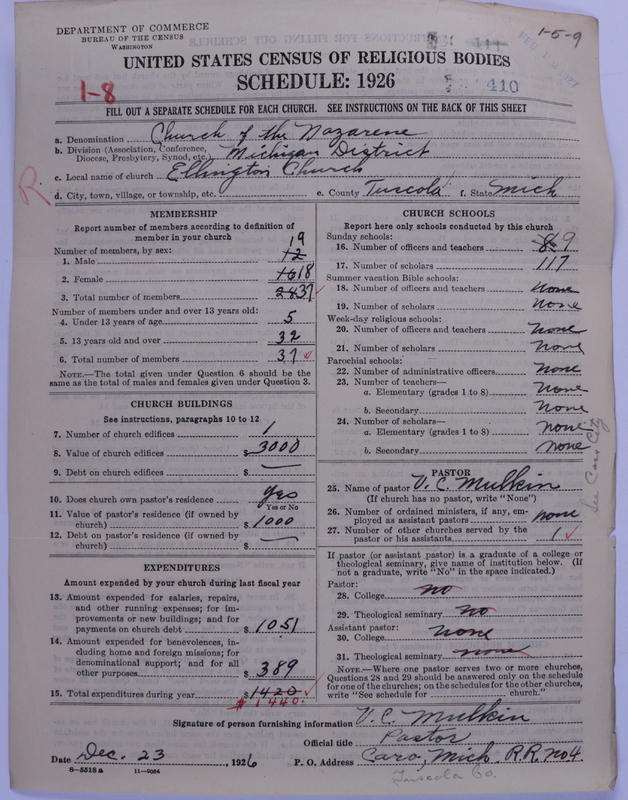 DEPARTMENT OF COMMERCE
BUREAU OF THE CENSUS
WASHINGTON
1-5-9
410
UNITED STATES CENSUS OF RELIGIOUS BODIES
SCHEDULE: 1926
1-8
FILL OUT A SEPARATE SCHEDULE FOR EACH CHURCH. SEE INSTRUCTIONS ON THE BACK OF THIS SHEET
a. Denomination Church of the Nazarene
b. Division (Association, Conference, Diocese, Presbytery, Synod, etc.) Michigan District
c. Local name of church Ellington Church
R.
d. City, town, village, or township, etc. e. County Tuscola f. State Mich
MEMBERSHIP
Report number of members according to definition of
member in your church
Number of members, by sex:
1. Male 12 19
2. Female 16 18
3. Total number of members 28 37
Number of members under and over 13 years old:
4. Under 13 years of age 5
5. 13 years old and over 32
6. Total number of members 37
NOTE.—The total given under Question 6 should be
the same as the total of males and females given under Question 3.
CHURCH BUILDINGS
See instructions, paragraphs 10 to 12
7. Number of church edifices 1
8. Value of church edifices $ 3000
9. Debt on church edifices $ —
10. Does church own pastor's residence Yes
Yes or No
11. Value of pastor's residence (if owned by
church) $ 1000
12. Debt on pastor's residence (if owned by
church) $ —
EXPENDITURES
Amount expended by your church during last fiscal year
13. Amount expended for salaries, repairs,
and other running expenses; for im-
provements or new buildings; and for
payments on church debt $ 1051
14. Amount expended for benevolences, in-
cluding home and foreign missions; for
denominational support; and for all
other purposes $ 389
15. Total expenditures during year $ 1420
$1440.
CHURCH SCHOOLS
Report here only schools conducted by this church
Sunday schools:
16. Number of officers and teachers 8 9
17. Number of scholars 117
Summer vacation Bible schools:
18. Number of officers and teachers None
19. Number of scholars None
Week-day religious schools:
20. Number of officers and teachers None
21. Number of scholars None
Parochial schools:
22. Number of administrative officers None
23. Number of teachers—
a. Elementary (grades 1 to 8) None
b. Secondary None
24. Number of scholars—
a. Elementary (grades 1 to 8) None
b. Secondary None
PASTOR
25. Name of pastor V. C. Mulkin
(If church has no pastor, write "None")
26. Number of ordained ministers, if any, em-
ployed as assistant pastors none
27. Number of other churches served by the
pastor or his assistants 1
See Cass City
If pastor (or assistant pastor) is a graduate of a college or
theological seminary, give name of institution below. (If
not a graduate, write "No" in the space indicated.)
Pastor:
28. College no
29. Theological seminary no
Assistant pastor:
30. College none
31. Theological seminary none
NOTE.—Where one pastor serves two or more churches,
Questions 28 and 29 should be answered only on the schedule
for one of the churches; on the schedules for the other churches,
write "See schedule for church."
Signature of person furnishing information V. C. Mulkin
Official title Pastor
Date Dec. 23, 1926 P. O. Address Caro, Mich. R.R. No 4
8—5518 a 11—9054
Tuscola Co.